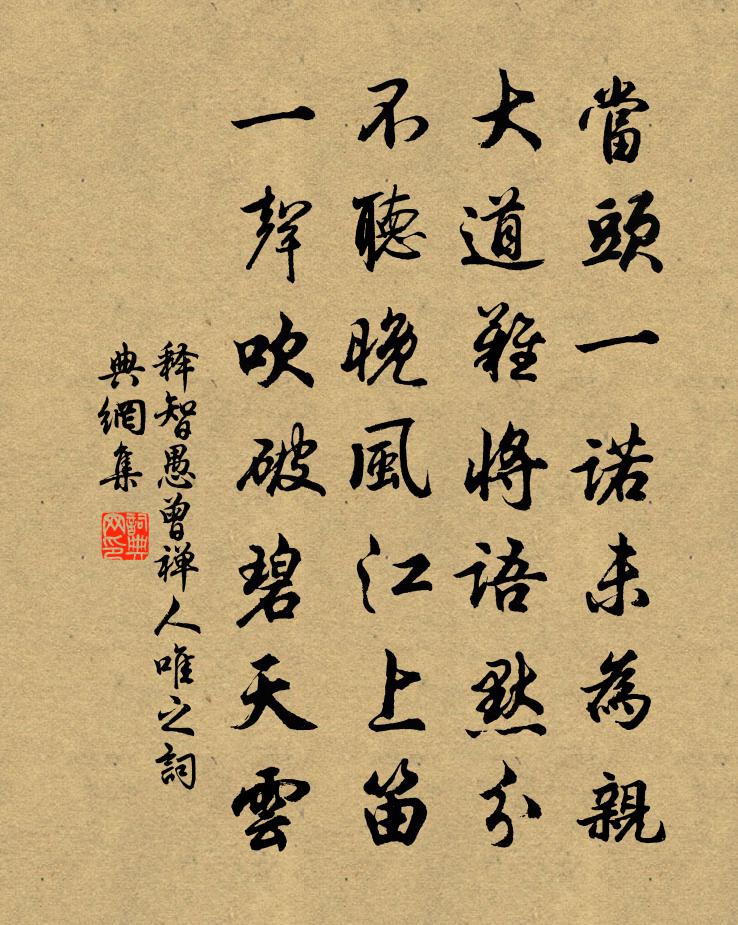 當頭一諾未為親
大道難將語默分
不聽晚風江上笛
一聲吹破碧天雲
释智愚曾禅人唯之詞
典網集
詞典
网印